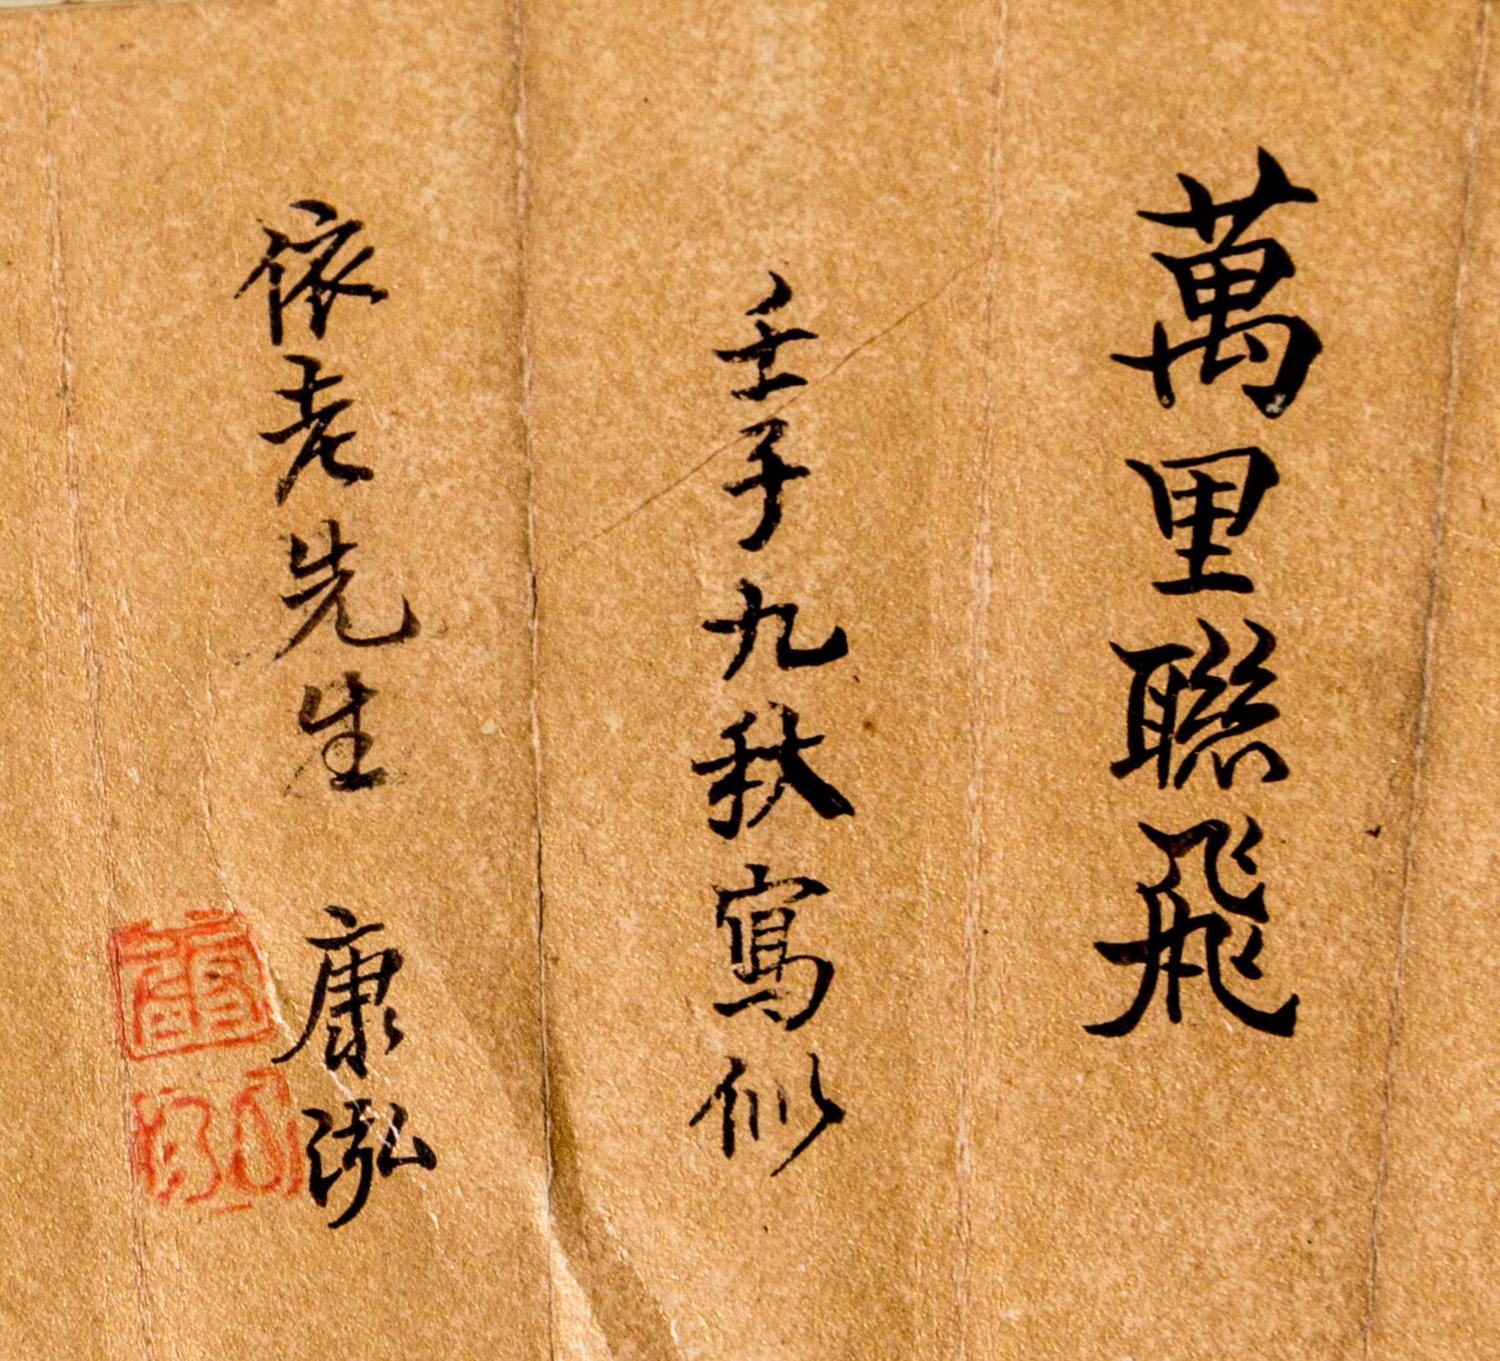 萬里聯飛
壬子九秋寫似
依老先生 康泓